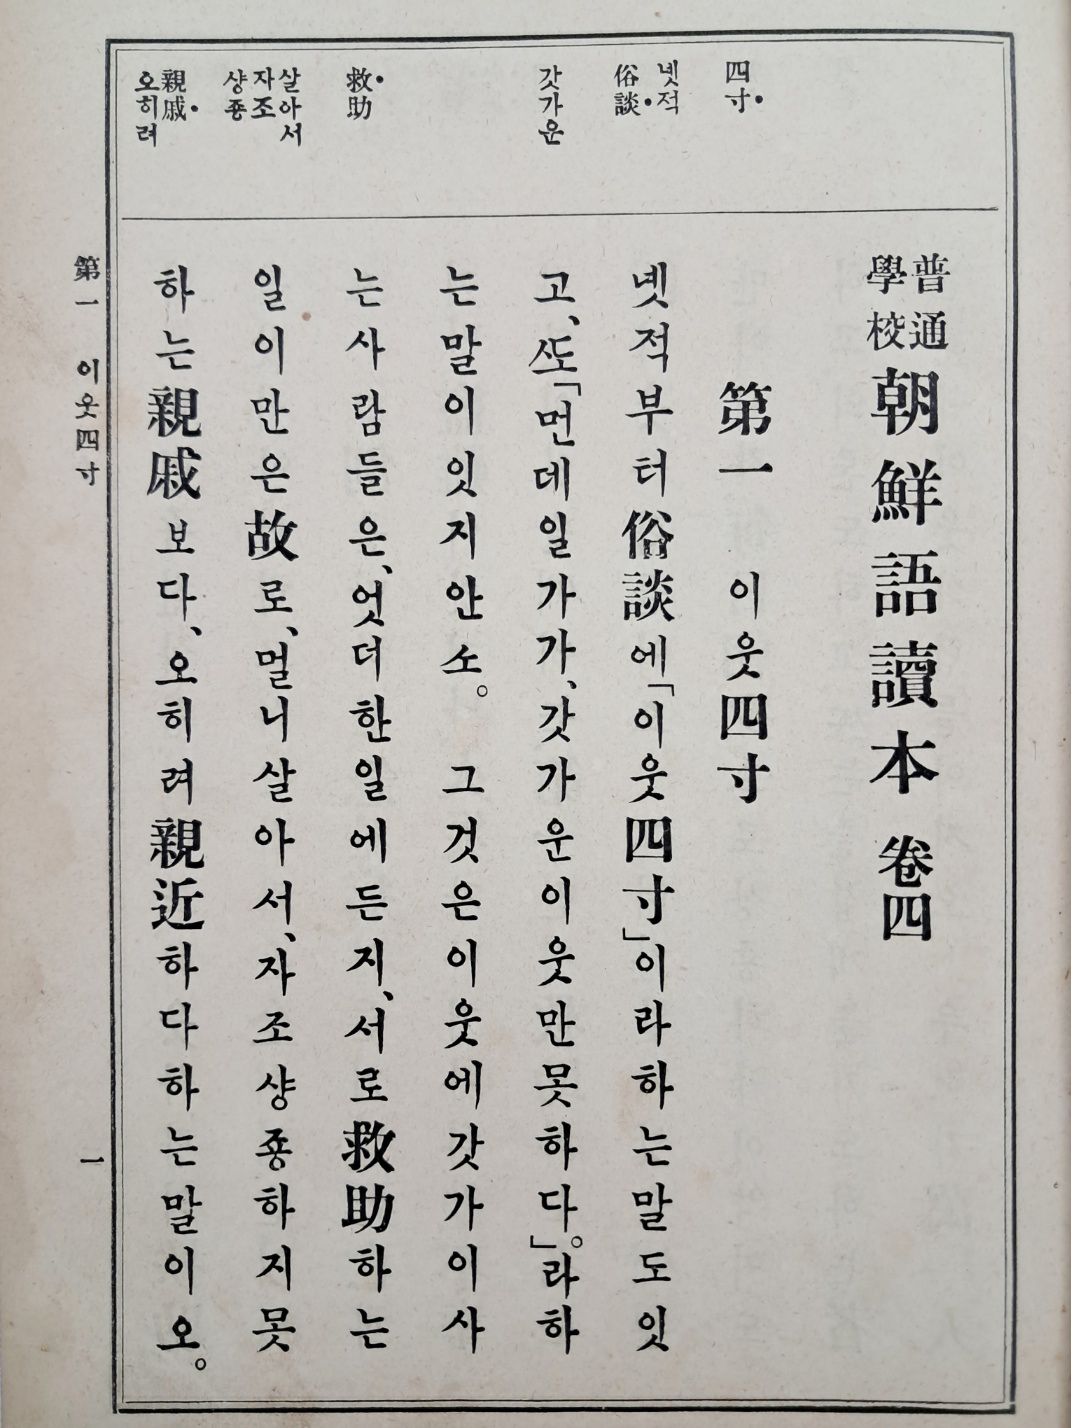 四寸
넷적
俗談
갓가운
救助
살아서
자조
샹죵
親戚
오히려
普通學校 朝鮮語讀本 卷四
第一 이웃四寸
넷적부터俗談에「이웃四寸」이라하는말도잇
고、ᄯᅩ「먼데일가가、갓가운이웃만못하다。」라하
는말이잇지안소。 그것은이웃에갓가이사
는사람들은、엇더한일에든지、서로救助하는
일이만은故로、멀니살아서、자조샹죵하지못
하는親戚보다、오히려親近하다하는말이오。
第一 이웃四寸
一